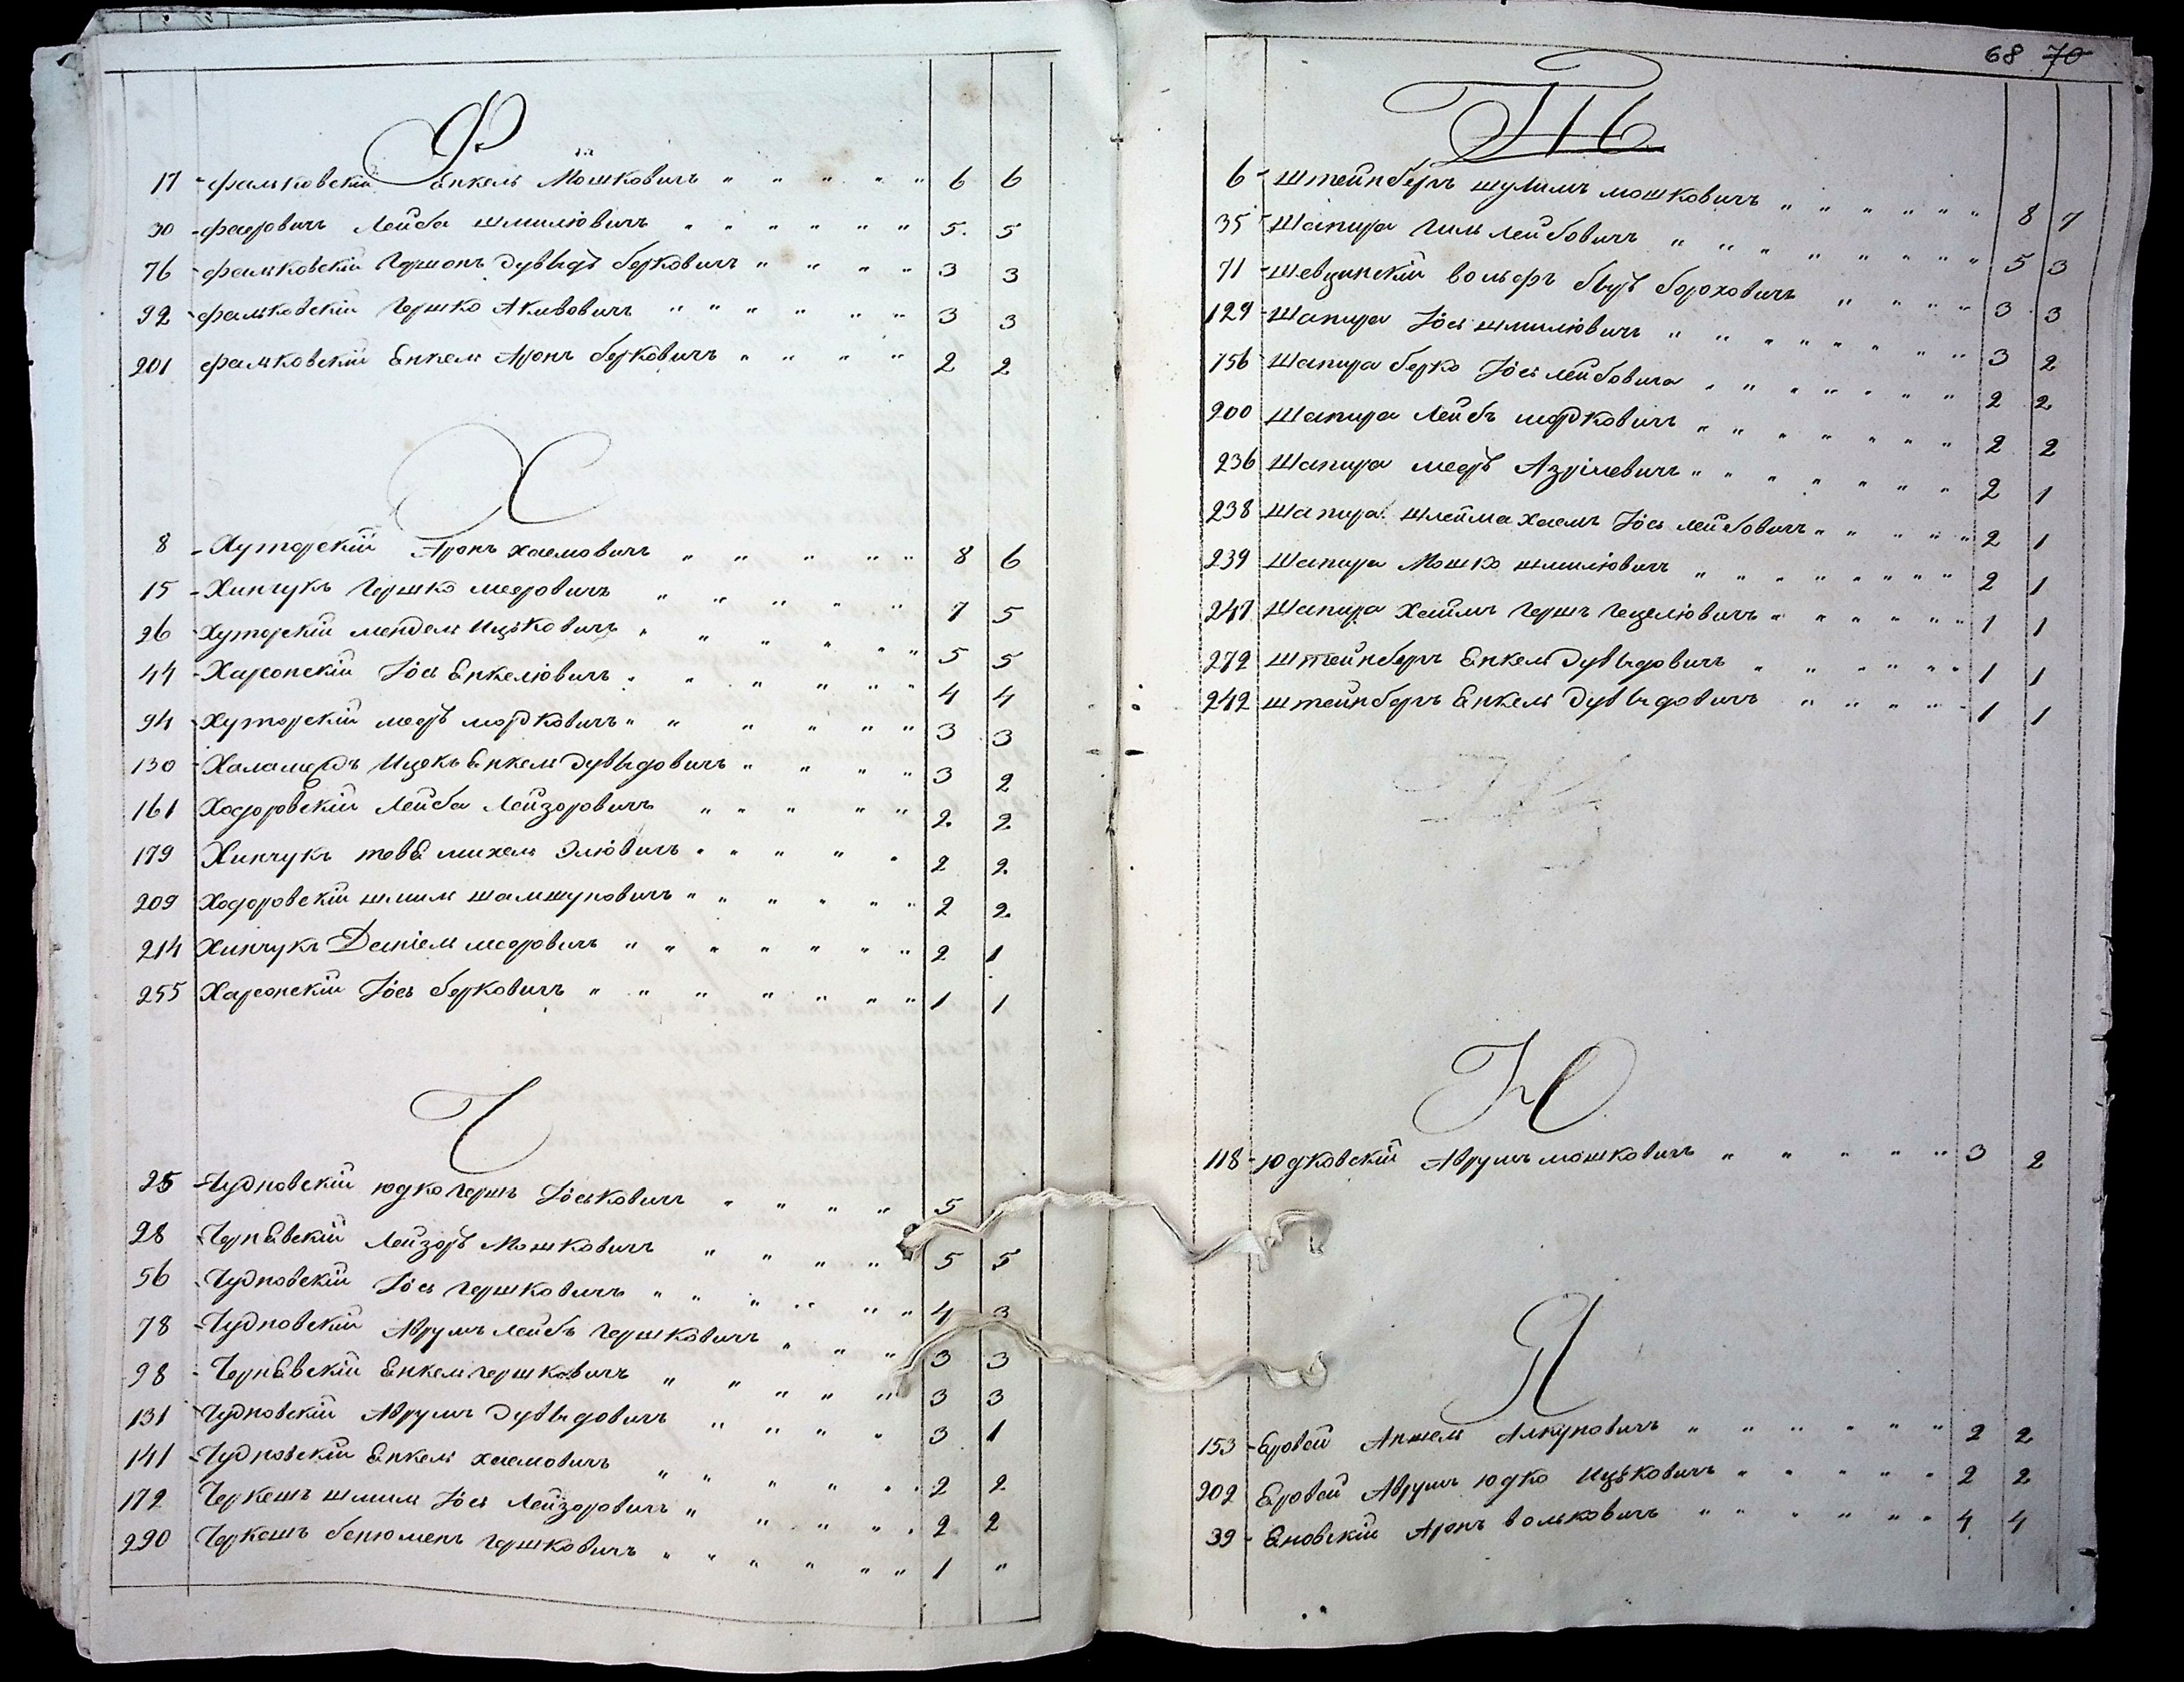 Ф
17 - Фалковскій Енкель Мошковичъ " " " " " 6 6
30 - Фаеровичъ Лейба Шмилювичъ " " " " " " 5. 5
76 - Фалковскій Гершонъ Дувыдъ Берковичъ " " " " 3 3
92 - Фалковскій Гершко Акивовичъ " " " " " " 3 3
201 Фалковскій Енкель Аронъ Берковичъ " " " " 2 2
Х
8 - Хуторскій Аронъ Хаемовичъ " " " " " 8 6
15 - Хинчукъ Гершко Мееровичъ " " " " " 7 5
26 - Хуторскій Мендель Ицьковичъ " " " " " " 5 5
44 - Харсонскій Іось Енкелювичъ " " " " " " 4 4
94 - Хуторскій Мееръ Мордковичъ " " " " " " 3 3
130 - Халамедъ Ицекъ Енкель Дувыдовичъ " " " " 3 2
161 Ходоровскій Лейба Лейзоровичъ " " " " " 2. 2
179 Хинчукъ Михель Элювичъ " " " " " 2 2
209 Ходоровскій Шмиль Шамшуновичъ " " " " " " 2 2
214 Хинчукъ Даніель Меоровичъ " " " " " " " 2 1
255 Харсонскій Іось Берковичъ " " " " " " " 1 1
Ч
25 - Чудновскій Юдко Гершъ Іоськовичъ " " " " 5
28 - Чернѣвскій Лейзоръ Мошковичъ " " " " 5 5
56 - Чудновскій Іось Гершковичъ " " " " " " 4 3
78 - Чудновскій Аврумъ Лейбъ Гершковичъ " " " 3 3
98 - Чернѣвскій Енкель Гершковичъ " " " " " 3 3
131 - Чудновскій Аврумъ Дувыдовичъ " " " " 3 1
141 - Чудновскій Енкель Хаемовичъ " " " " " 2 2
172 Черкешъ Шмиль Іось Лейзоровичъ " " " " " 2 2
290 Черкешъ Бенюменъ Гершковичъ " " " " " " 1 "
68 70
Ш
6 - Штейнбергъ Шулимъ Мошковичъ " " " " " " 8 7
35 - Шапира Гиль Лейбовичъ " " " " " " " " 5 3
71 - Шевцинскій Вольфъ Бороховичъ " " " " 3 3
129 - Шапира Іось Шмилювичъ " " " " " " " " 3 2
156 Шапира Берко Іось Лейбовича " " " " " " " 2 2
200 Шапира Лейбъ Мордковичъ " " " " " " " 2 2
236 Шапира Мееръ Азрілевичъ " " " " " " " 2 1
238 Шапира Шлейма Хаемъ Іось Лейбовичъ " " " " " 2 1
239 Шапира Мошко Шмилювичъ " " " " " " " " 2 1
247 Шапира Хаимъ Гершъ Гецелювичъ " " " " " " 1 1
272 Штейнбергъ Енкель Дувыдовичъ " " " " " " 1 1
242 Штейнбергъ Енкель Дувыдовичъ " " " " " 1 1
Ю
118 - Юдковскій Аврумъ Мошковичъ " " " " " 3 2
Я
153 - Еровой Аншель Алкуновичъ " " " " " " 2 2
202 Еровой Аврумъ Юдко Ицьковичъ " " " " " 2 2
39 - Еновскій Аронъ Вольковичъ " " " " " " 4 4